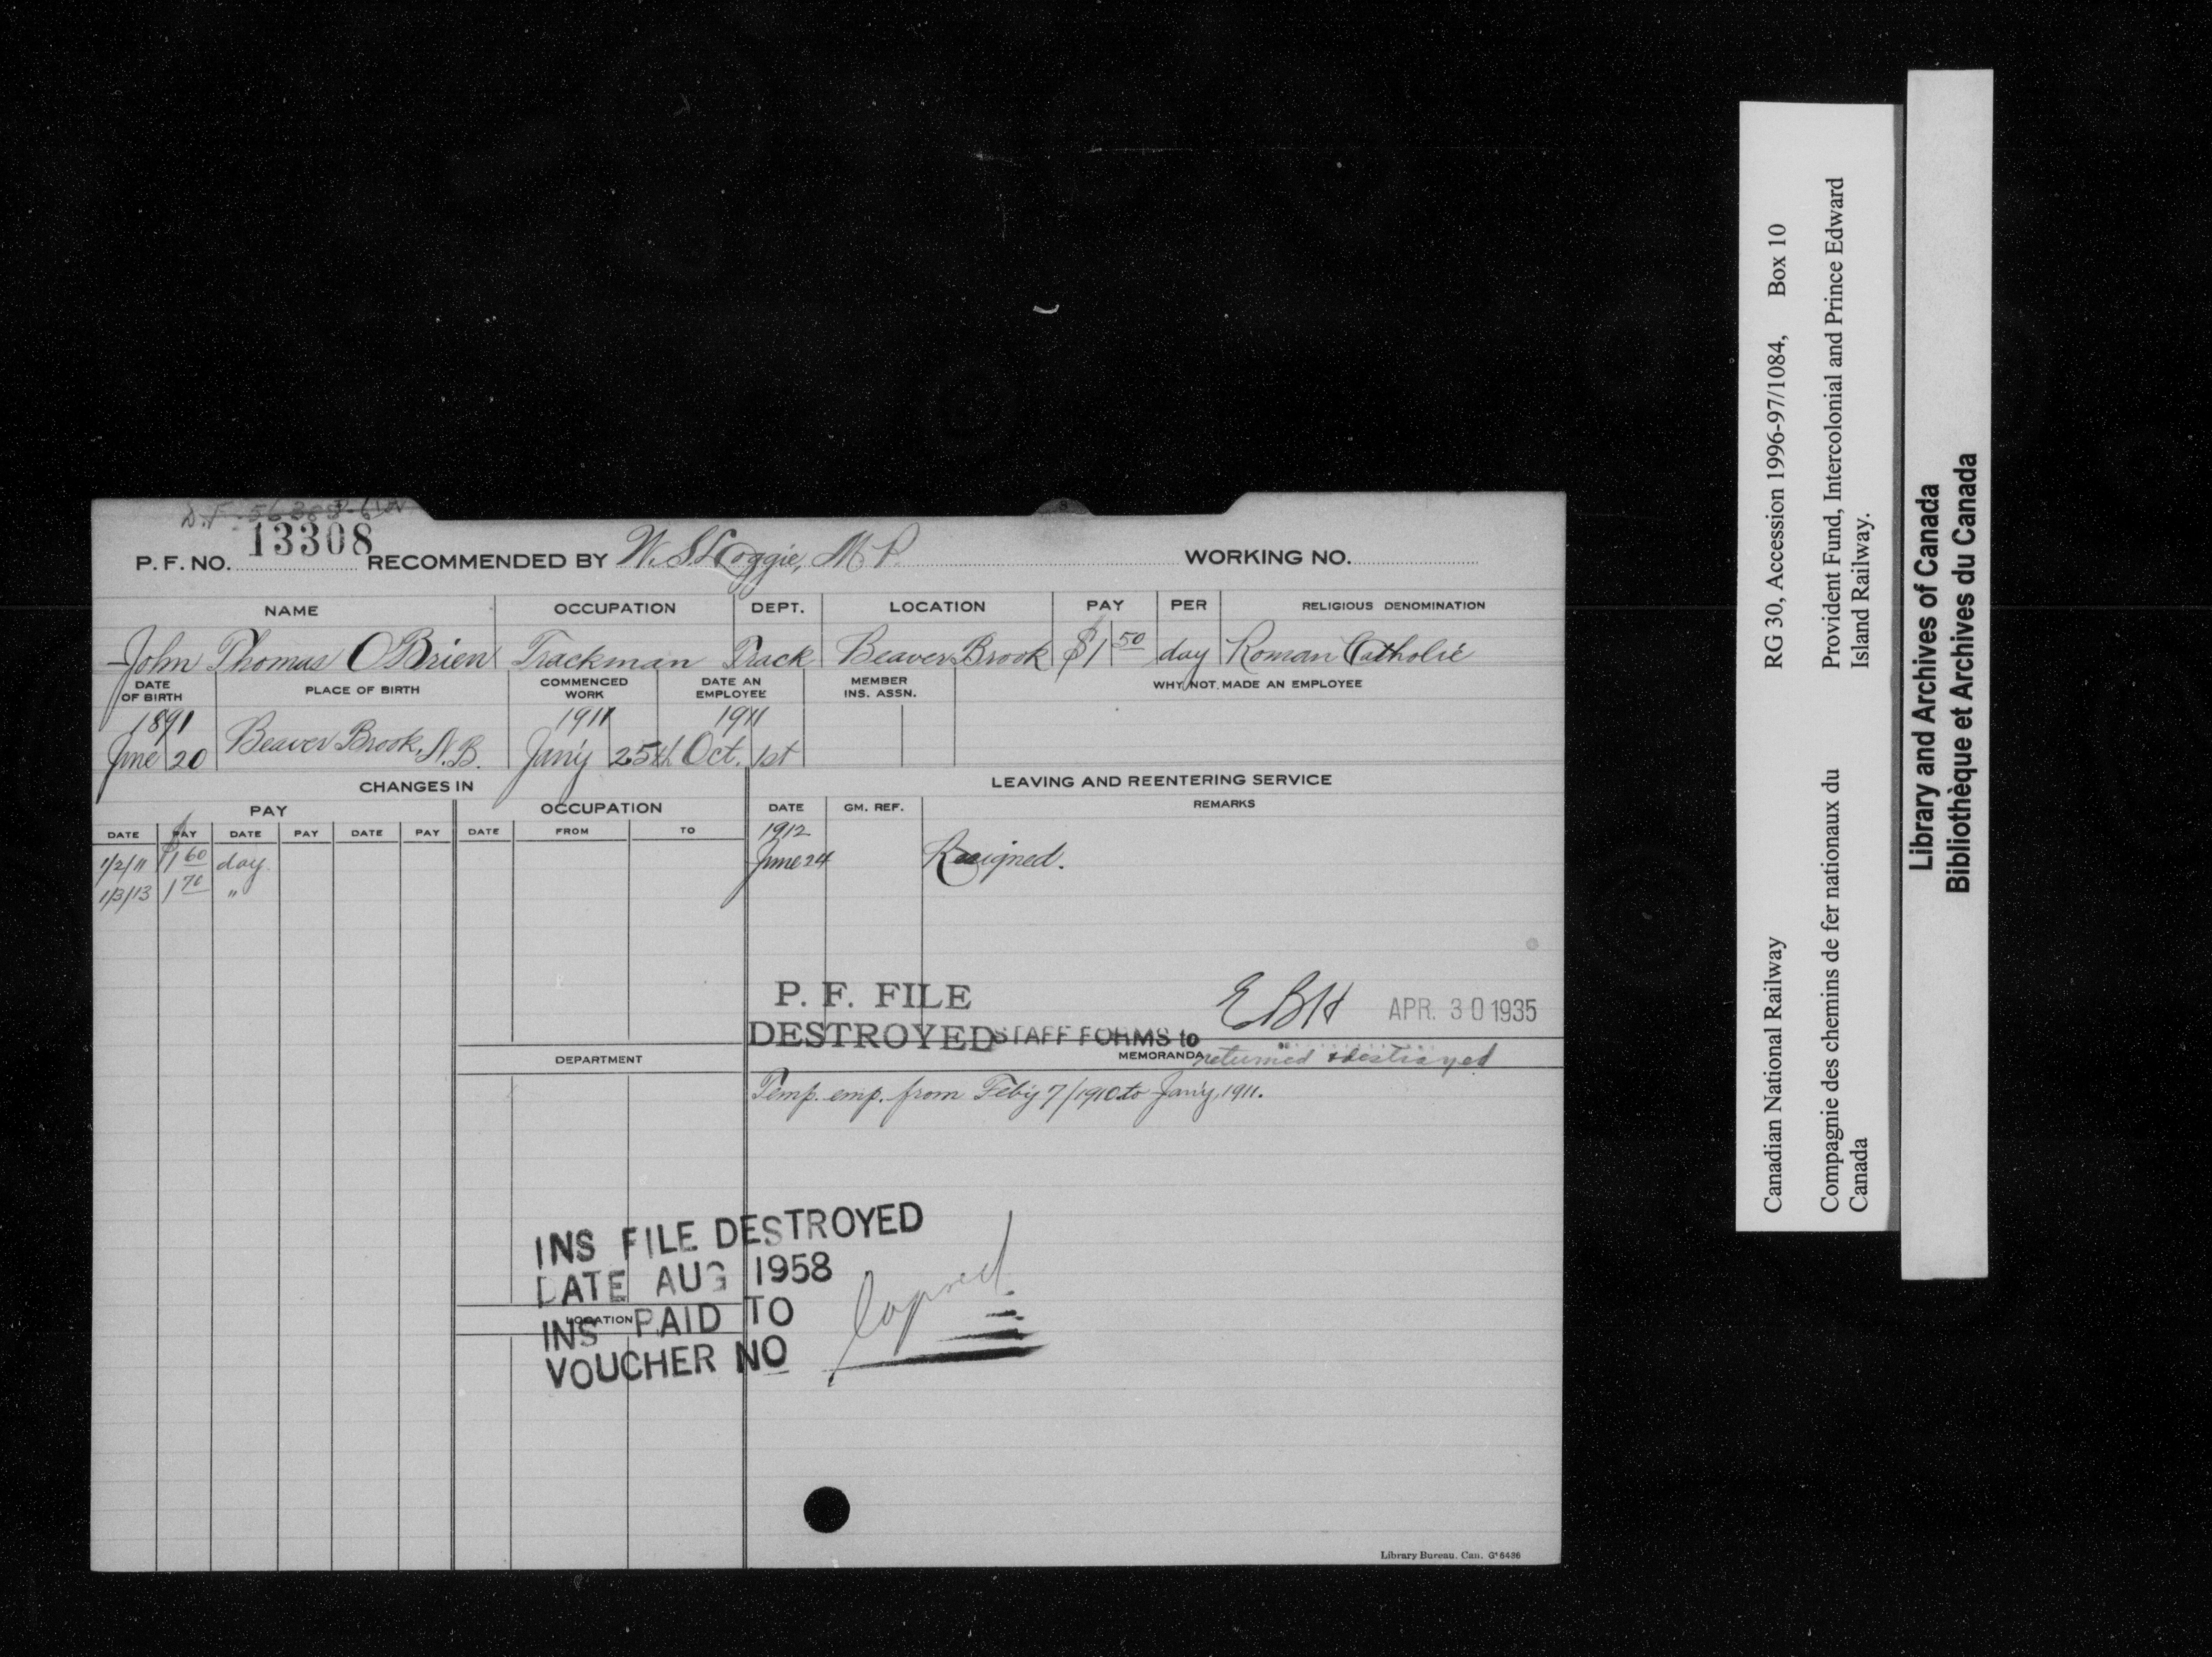 13308
P. F. NO. RECOMMENDED BY W. S. Loggie, M P. WORKING NO.
NAME OCCUPATION DEPT. LOCATION PAY PER RELIGIOUS DENOMINATION
John Thomas O'Brien Trackman Track Beaver Brook $1 50 day Roman Catholic
DATE OF BIRTH PLACE OF BIRTH COMMENCED WORK DATE AN EMPLOYEE MEMBER INS. ASSN. WHY NOT MADE AN EMPLOYEE
1891 1911 1911
June 20 Beaver Brook, N.B. Jan'y 25th Oct. 1st
CHANGES IN LEAVING AND REENTERING SERVICE
PAY OCCUPATION DATE GM. REF. REMARKS
DATE PAY DATE PAY DATE PAY DATE FROM TO
1912
1/2/11 $1 60 day June 24 Resigned.
1/3/13 1 70 "
P. F. FILE
DESTROYED
EBH APR. 30 1935
STAFF FORMS to
DEPARTMENT MEMORANDA returned & destroyed
Temp. emp. from Feb'y 7/1910 to Jan'y 1911.
INS FILE DESTROYED
DATE AUG 1958
LOCATION
INS PAID TO
VOUCHER NO
lapsed
Library Bureau. Can. G 6436
Canadian National Railway RG 30, Accession 1996-97/1084, Box 10
Compagnie des chemins de fer nationaux du Provident Fund, Intercolonial and Prince Edward
Canada Island Railway.
Library and Archives of Canada
Bibliothèque et Archives du Canada